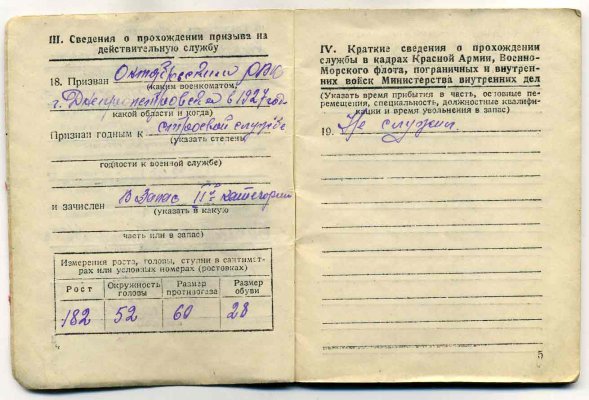 III. Сведения о прохождении призыва на
действительную службу
18. Призван Октябрьским РВК
(каким военкоматом,
г. Днепропетровска в 1927 году
какой области и когда)
Признан годным к строевой службе
(указать степень
годности к военной службе)
и зачислен В запас II категории
(указать в какую
часть или в запас)
Измерения роста, головы, ступни в сантимет-
рах или условных номерах (ростовках)
Рост Окружность головы Размер противогаза Размер обуви
182 52 60 28
IV. Краткие сведения о прохождении
службы в кадрах Красной Армии, Военно-
Морского флота, пограничных и внутрен-
них войск Министерства внутренних дел
(Указать время прибытия в часть, основные пе-
ремещения, специальность, должностные квалифи-
кации и время увольнения в запас)
19. Не служил.
5